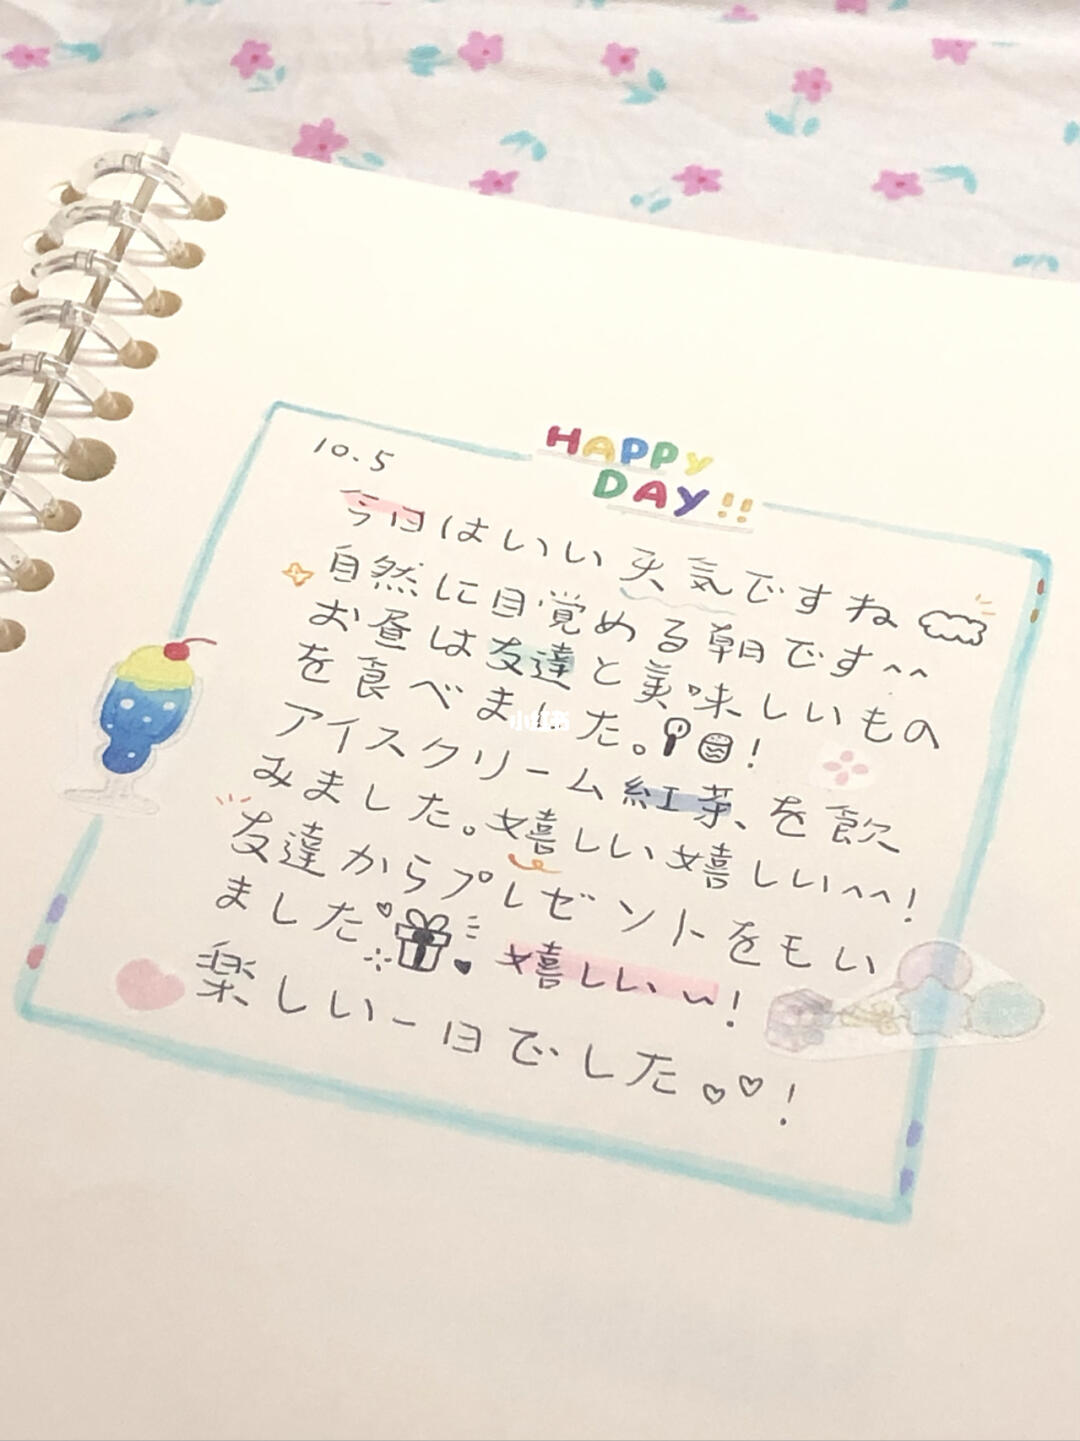 HAPPY
DAY!!
10.5
今日はいい天気ですね
自然に目覚める朝です^^
お昼は友達と美味しいもの
を食べました。!
アイスクリーム紅茶、を飲
みました。嬉しい嬉しい^^!
友達からプレゼントをもい
ました
嬉しい!
楽しい一日でした♡♡!
小红书